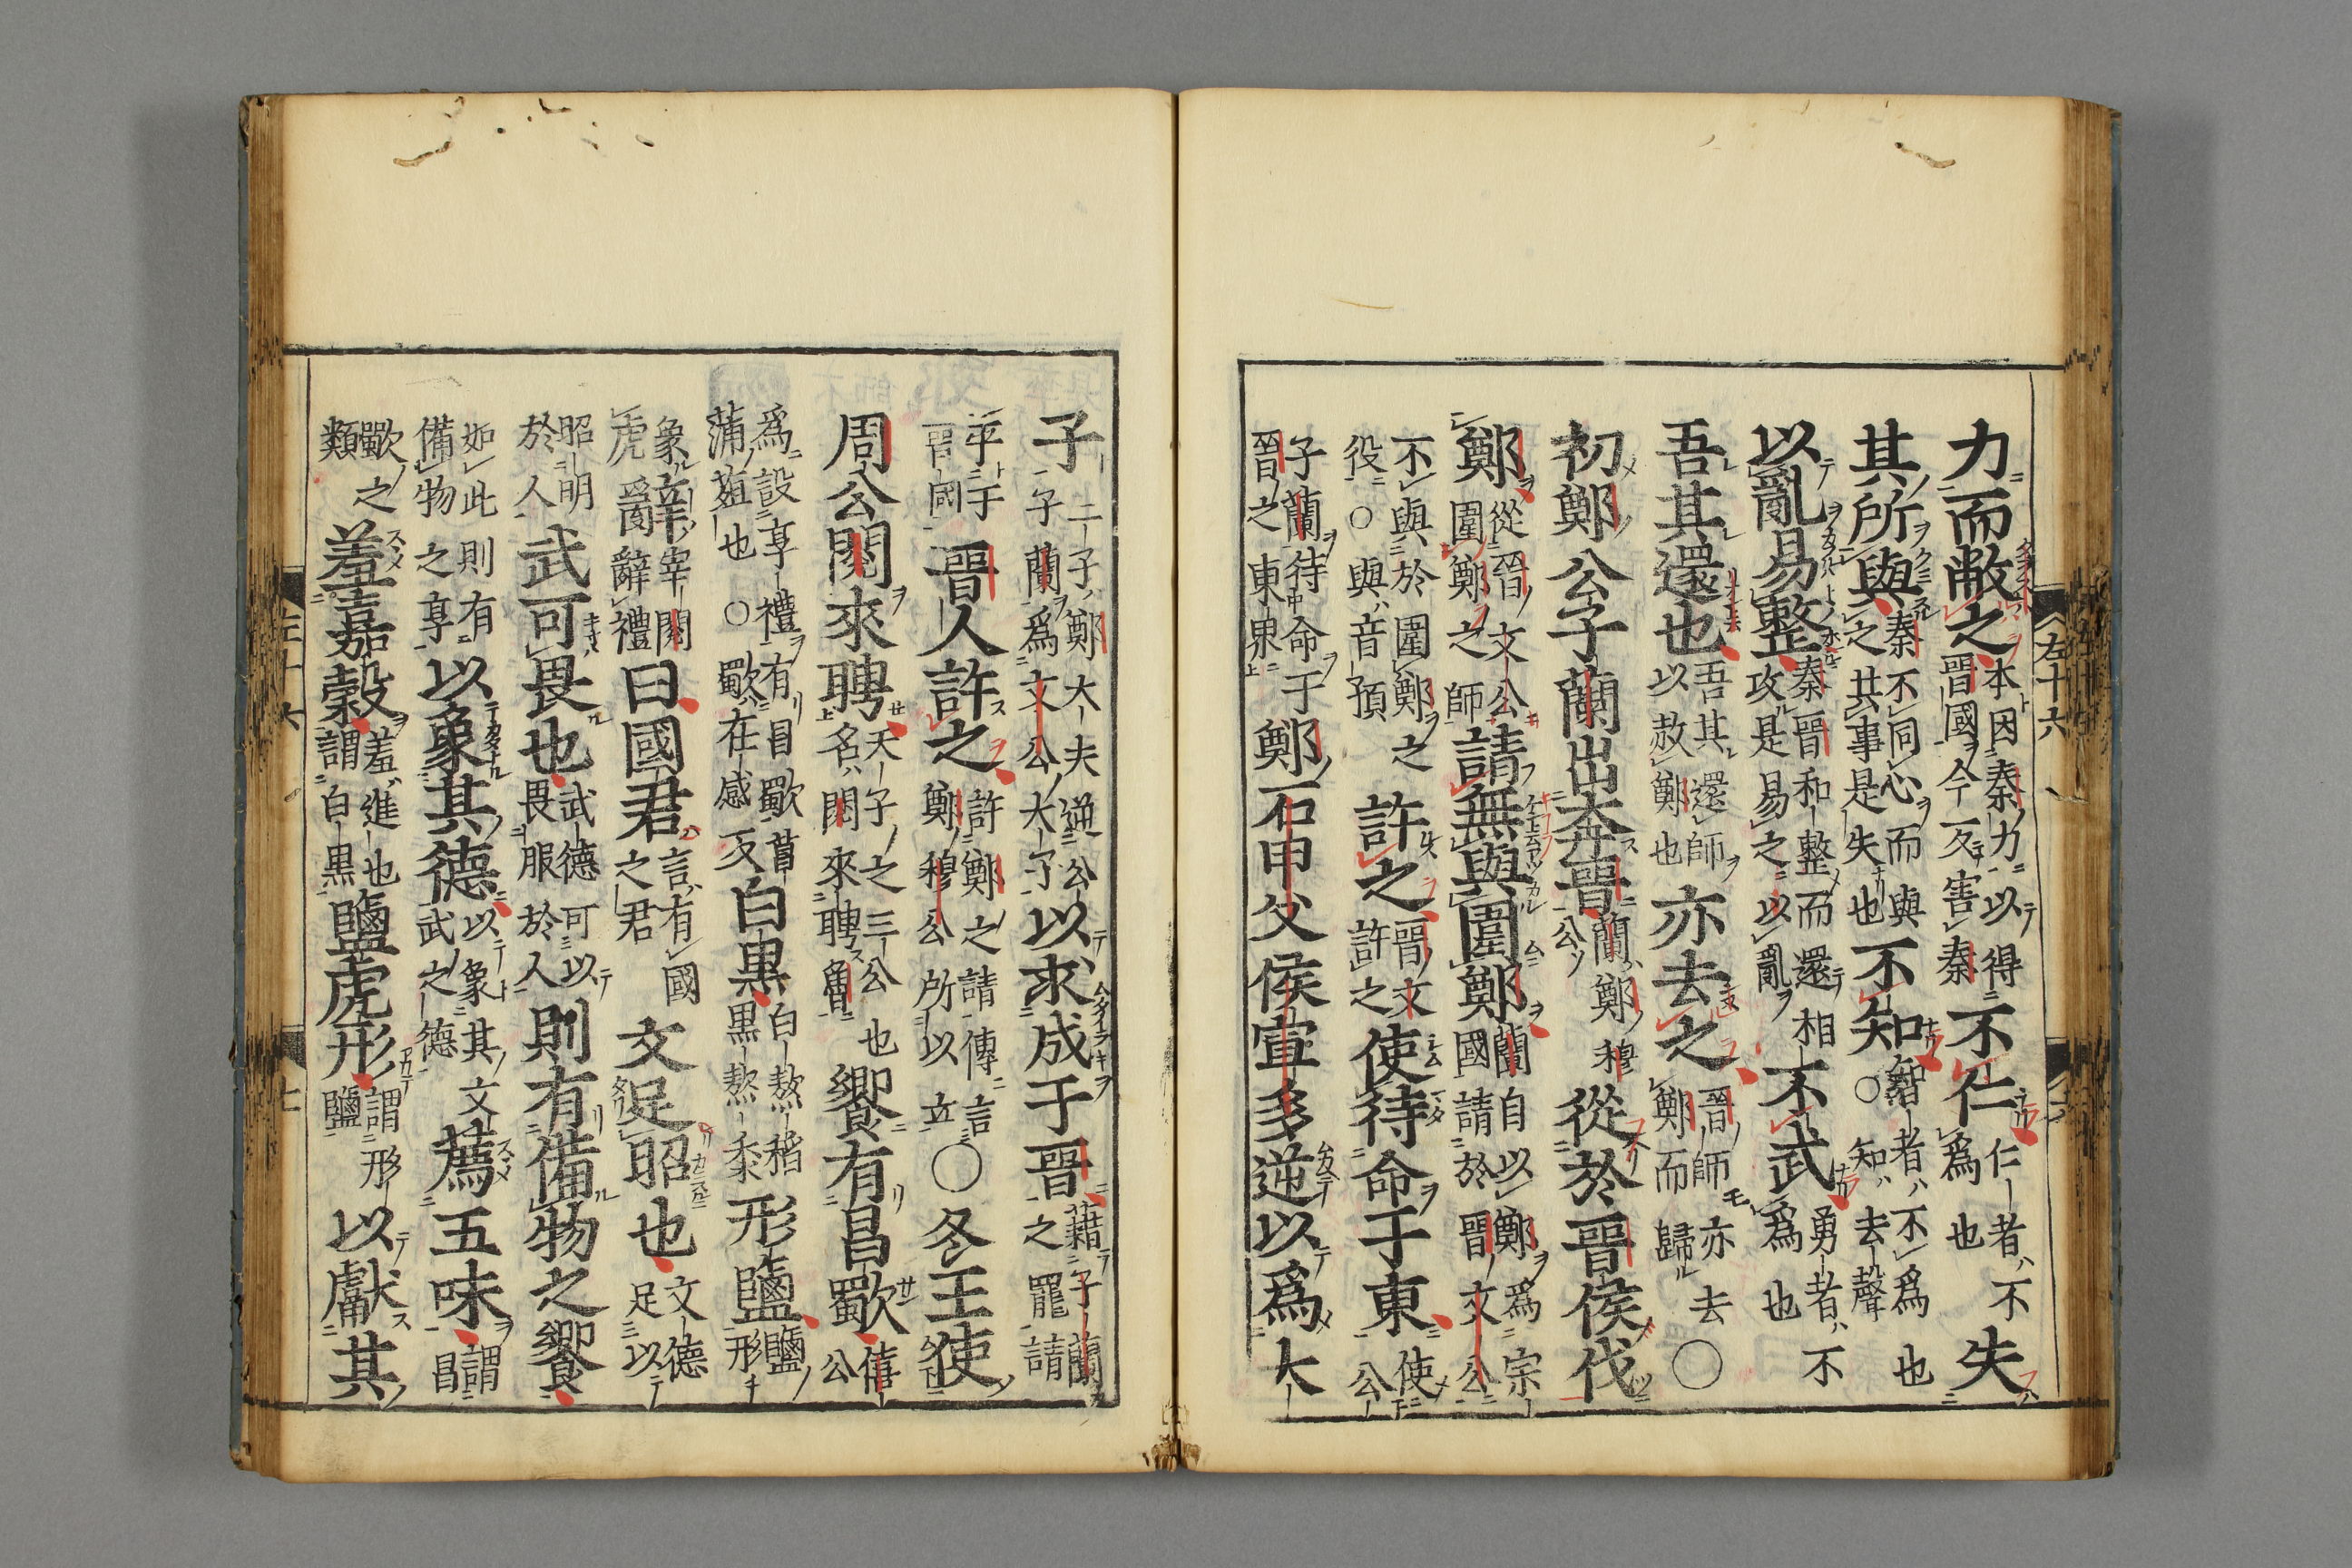 力而敝之晉國今一反害秦本因秦力以得不仁爲也仁者不失
其所與之共事是失也秦不同心而與不知知去聲智者不爲也
以亂易整攻是易之以亂秦晉和整而還相不武爲也勇者不
吾其還也以赦鄭也吾其還師亦去之鄭而歸晉師亦去○
初鄭公子蘭出奔晉公蘭鄭穆從於晉侯伐
鄭圍鄭之師從晉文公請無與圍鄭國請於晉文公蘭自以鄭爲宗
不與於圍鄭之役○與音預許之許之晉文使待命于東公使
子蘭待命于晉之東界鄭石甲父侯宣多逆以爲大
子子蘭爲文公大子二子鄭大夫逆公以求成于晉之罷請藉子蘭
平于晉國晉人許之鄭穆公所以立許鄭之請傳言○冬王使
周公閱來聘名閱來聘魯天子之三公也饗有昌歜公僖
爲設享禮○有昌歜昌蒲葅也歜在感反白黑白熬稻黑熬黍形鹽鹽形
象虎辭宰閱辭禮曰國君之君言有國文足昭也足以文德
昭明於人武可畏也畏服於人武德可以則有備物之饗
如此則有備物之享以象其德武之德以象其文薦五味謂昌
歜之類羞嘉穀羞進也謂白黑鹽虎形謂形鹽以獻其
左十六